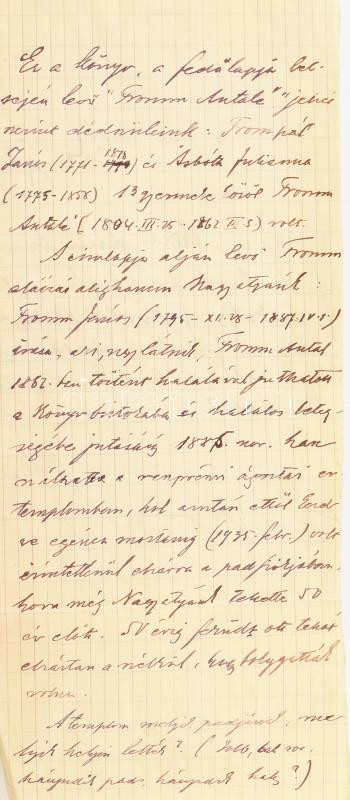 Ez a könyv, a fedőlapja bel-
sején levő "Fromm Antalé" jelzés
szerint dédszüleink: Fromm Pál
János (1771-1848) és Asbóth Julianna
(1775-1858) 13 gyermeke közül Fromm
Antalé (1804. III. 25 - 1862 IV. 5) volt.
A címlapja alján levő Fromm
aláírás alighanem Nagyatyánk:
Fromm János (1795- XII. 28 - 1887. IV. 1.)
írása, aki, úgy látszik, Fromm Antal
1862. ben történt halálával juthatott
a könyv birtokába és halálos beteg-
ségébe jutásáig 1885. nov. hasz-
nálhatta a soproni ágostai ev
templomban, hol azután ettől kezd
ve egészen mostanig (1935. febr.) volt
érintetlenül elzárva a pad fiókjában,
hova még Nagyatyánk tehette 50
év előtt. 50 évig feküdt ott tehát
elzártan a nélkül, hogy bolygatták
volna.
A templom melyik padjának, me
lyik helyén lehetett? (Jobb, bal sor,
hányadik pad, hányadik hely?)